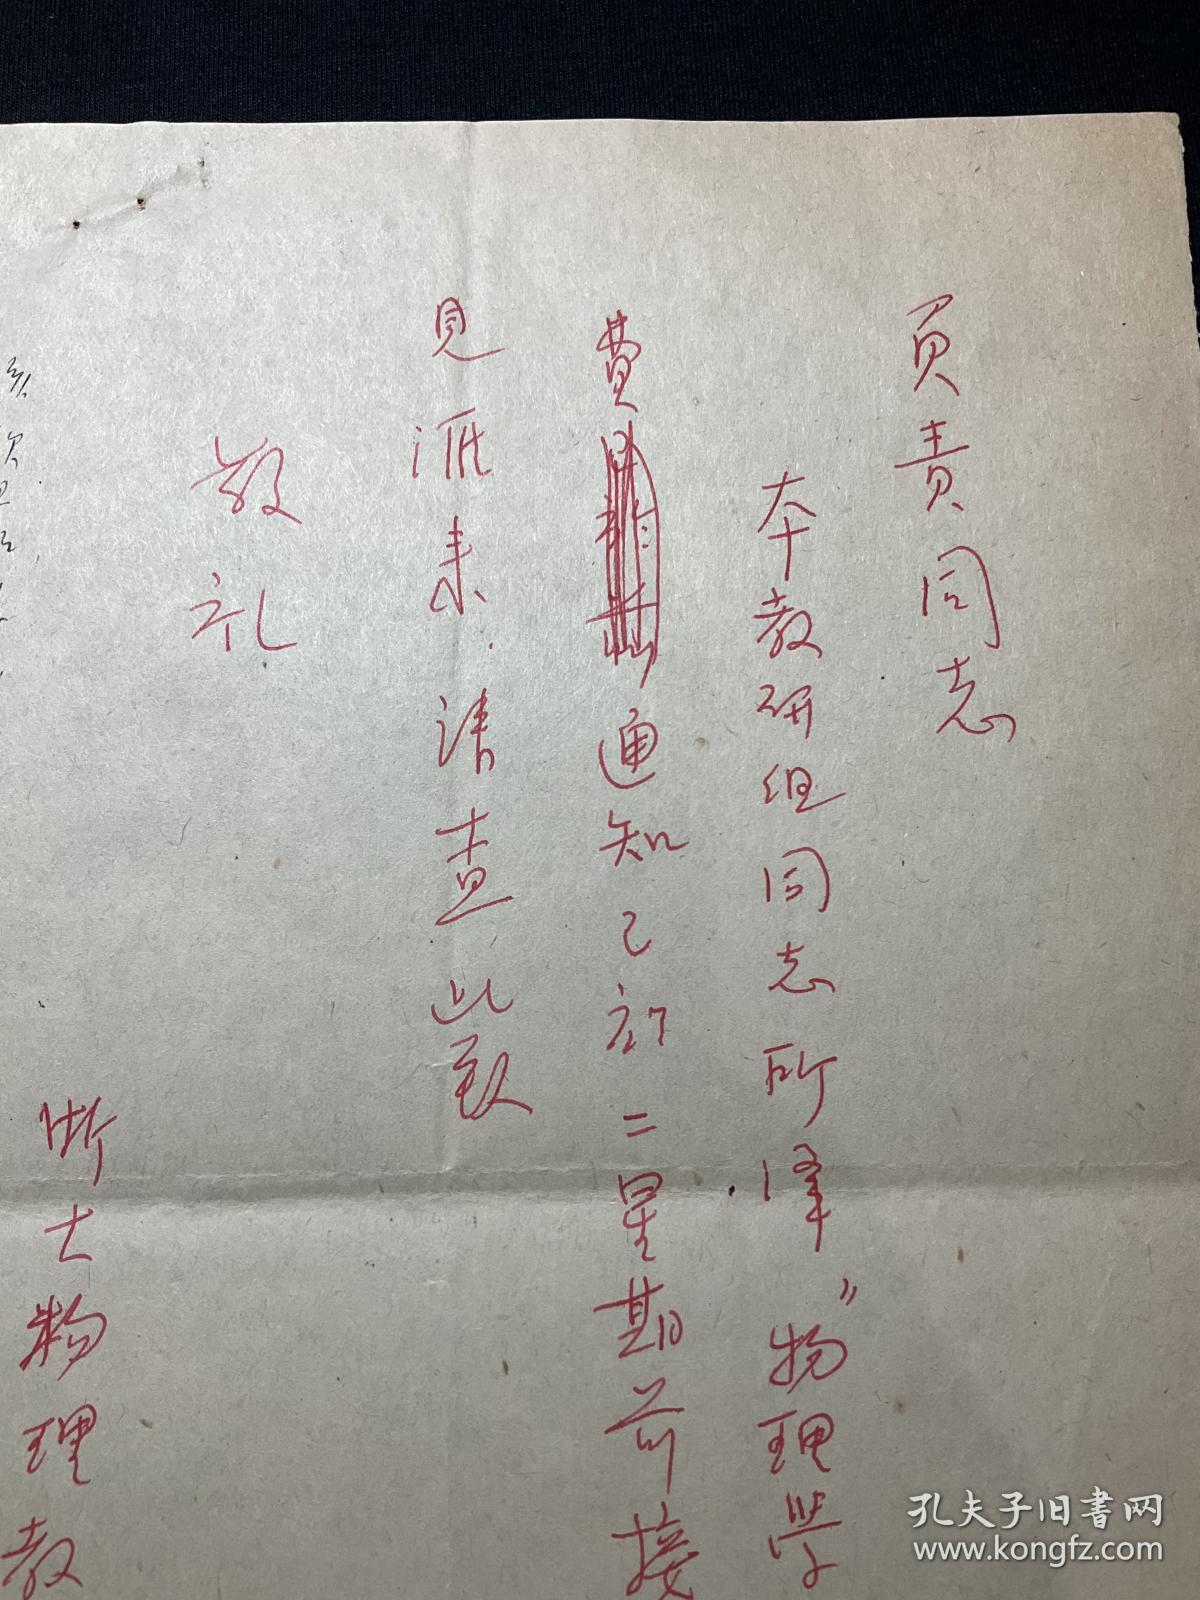 负责同志
本教研组同志所译“物理学
费通知已于二星期前接
见汇来.请查此致
敬礼
浙大物理教
孔夫子旧书网
www.kongfz.com